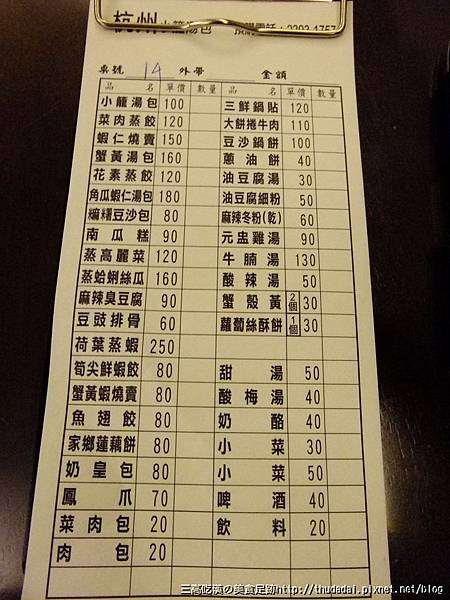 杭州小籠湯包
2393-1757
桌號 14 外帶 金額
品名 單價 數量 品名 單價 數量
小籠湯包 100 三鮮鍋貼 120
菜肉蒸餃 120 大餅捲牛肉 110
蝦仁燒賣 150 豆沙鍋餅 100
蟹黃湯包 160 蔥油餅 40
花素蒸餃 120 油豆腐湯 30
角瓜蝦仁湯包 180 油豆腐細粉 50
豆沙包 80 麻辣冬粉(乾) 60
南瓜糕 90 元盅雞湯 90
蒸高麗菜 120 牛腩湯 130
蒸蛤蜊絲瓜 160 酸辣湯 50
麻辣臭豆腐 90 蟹殼黃 2個 30
豆豉排骨 60 蘿蔔絲酥餅 1個 30
荷葉蒸蝦 250
筍尖鮮蝦餃 80 甜湯 50
蟹黃蝦燒賣 80 酸梅湯 40
魚翅餃 80 奶酪 40
家鄉蓮藕餅 80 小菜 30
奶皇包 80 小菜 50
鳳爪 70 啤酒 40
菜肉包 20 飲料 20
肉包 20
三高吃貨の美食足跡http://thudadai.pixnet.net/blog